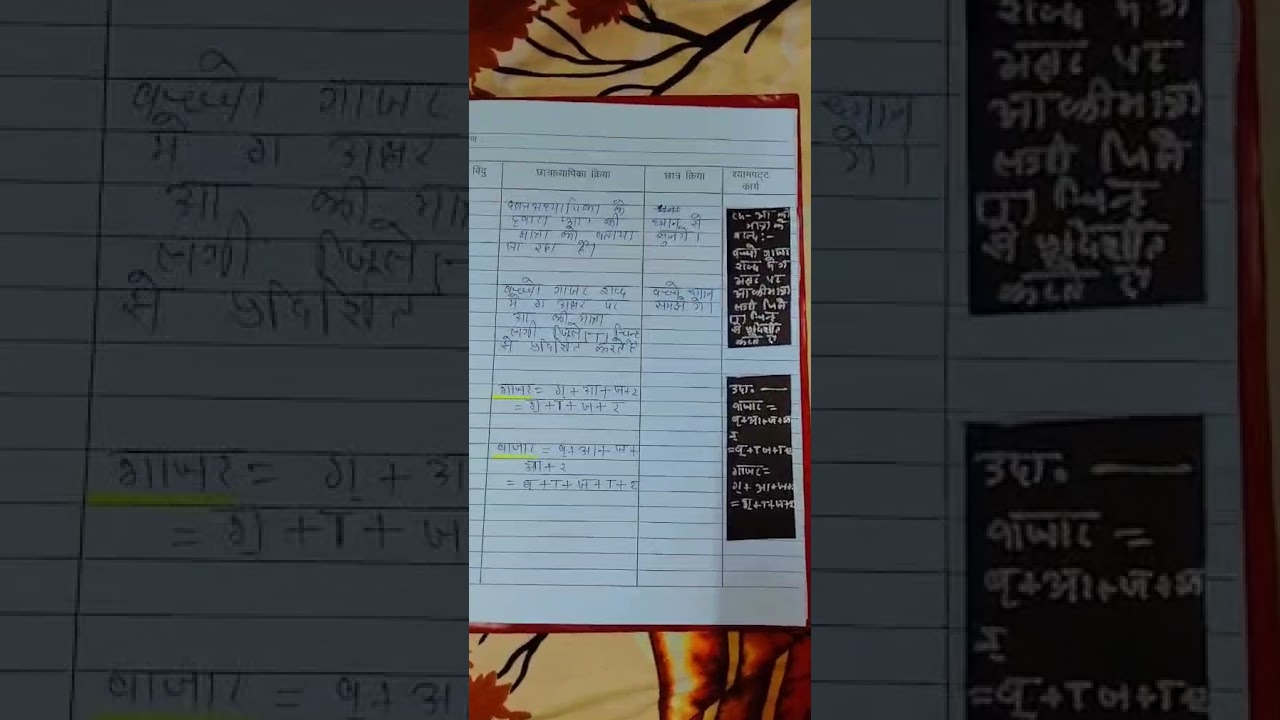 बिंदु
छात्राध्यापिका क्रिया
छात्र क्रिया
श्यामपट्ट
कार्य
छात्राध्यापिका के
द्वारा "आ" की
मात्रा को बताया
जा रहा है।
ध्यान से
सुनेंगे।
बच्चो गाजर शब्द
में ग अक्षर पर
आ की मात्रा
लगी जिसे (ा) चिन्ह
से प्रदर्शित करते है
बच्चे ध्यान
समझेंगे।
गाजर = ग् + आ + ज + र
= ग् + ा + ज + र
बाजार = ब् + आ + ज +
आ + र
= ब + ा + ज + ा + र
आ की
मात्रा के
शब्द :-
बच्चो गाजर
शब्द में ग
अक्षर पर
आ की मात्रा
लगी जिसे
(ा) चिन्ह
से प्रदर्शित
करते है
उदा. —
बाजार =
ब् + आ + ज + आ
र
= ब् + ा ज + ा र
गाजर =
ग् + आ + ज + र
= ग् + ा + ज + र